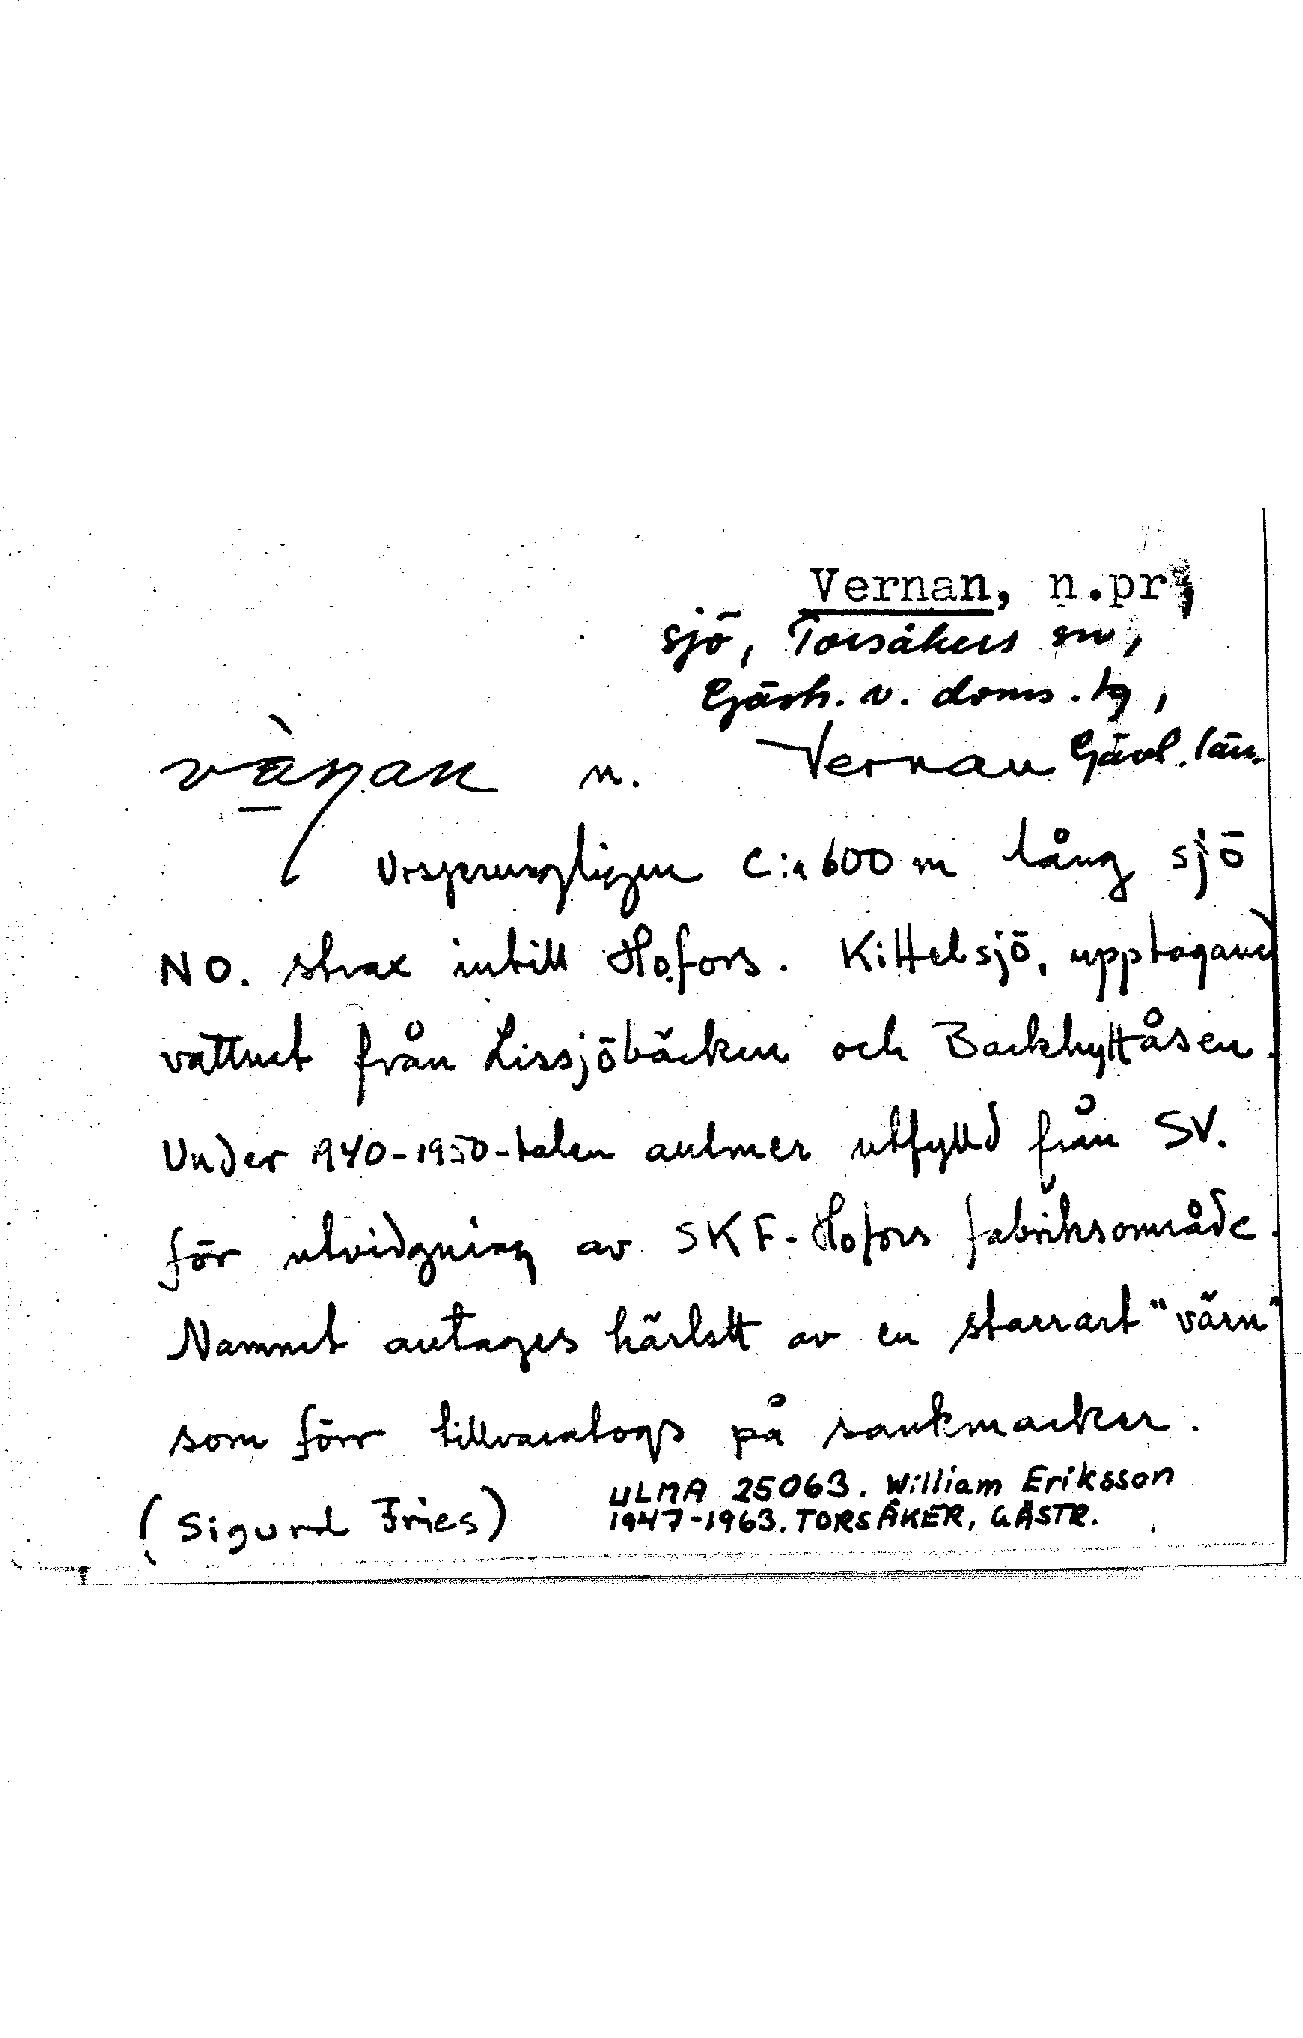 Vernan, n.pr,
sjö, Torsåkers sn,
Gästr. v. doms. tg,
Gävl. län.
vàṇan n. Vernan
Ursprungligen c:a 600 m lång sjö
NO. strax intill Hofors. Kittelsjö, upptagand
vattnet från Lissjöbäcken och Backhyttåsen.
Under 1940-1950-talen alltmer utfylld från SV.
för utvidgning av SKF-Hofors fabriksområde.
Namnet antages härlett av en starrart "värn"
som förr tillvaratogs på sankmarker.
(Sigurd Fries) ULMA 25063. William Eriksson
1947-1963. TORSÅKER, GÄSTR.